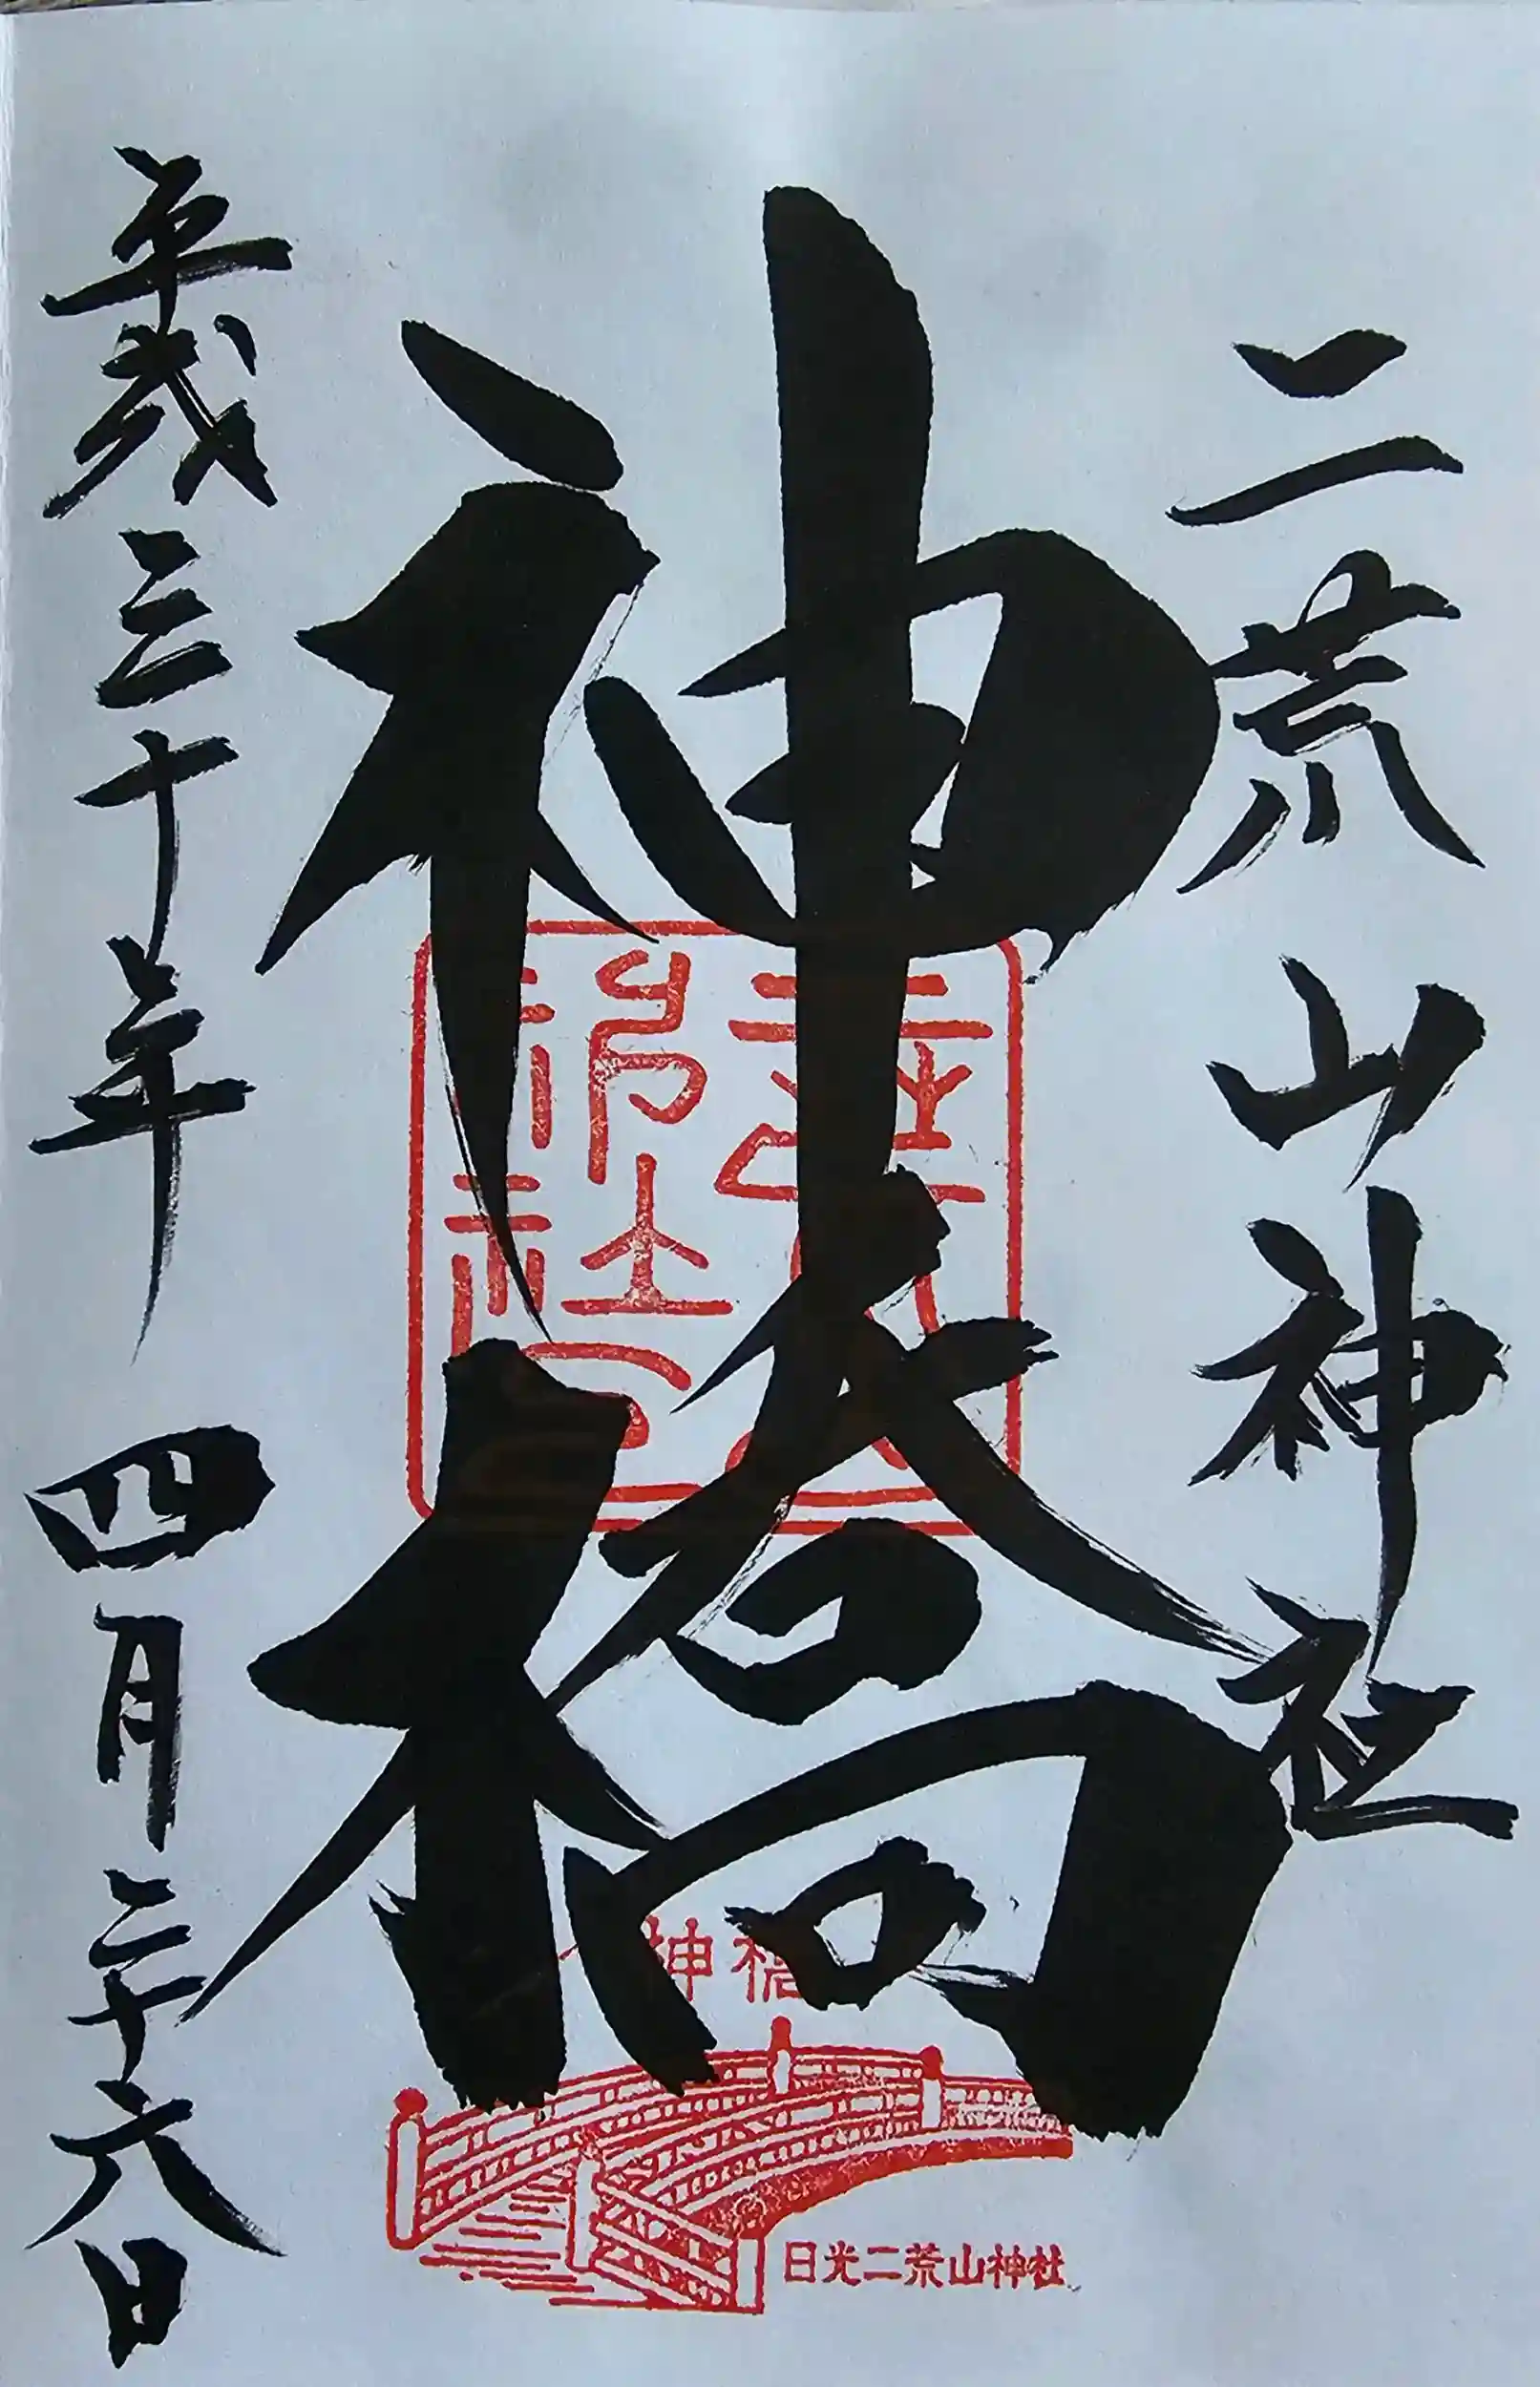 二荒山神社
神橋
平成三十年四月二十六日
神橋
日光二荒山神社